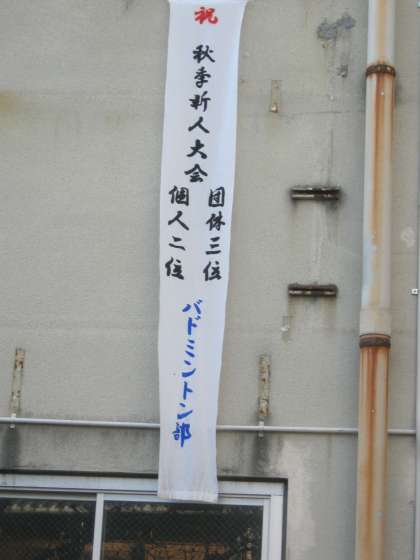 祝
秋季新人大会
団体三位
個人二位
バドミントン部